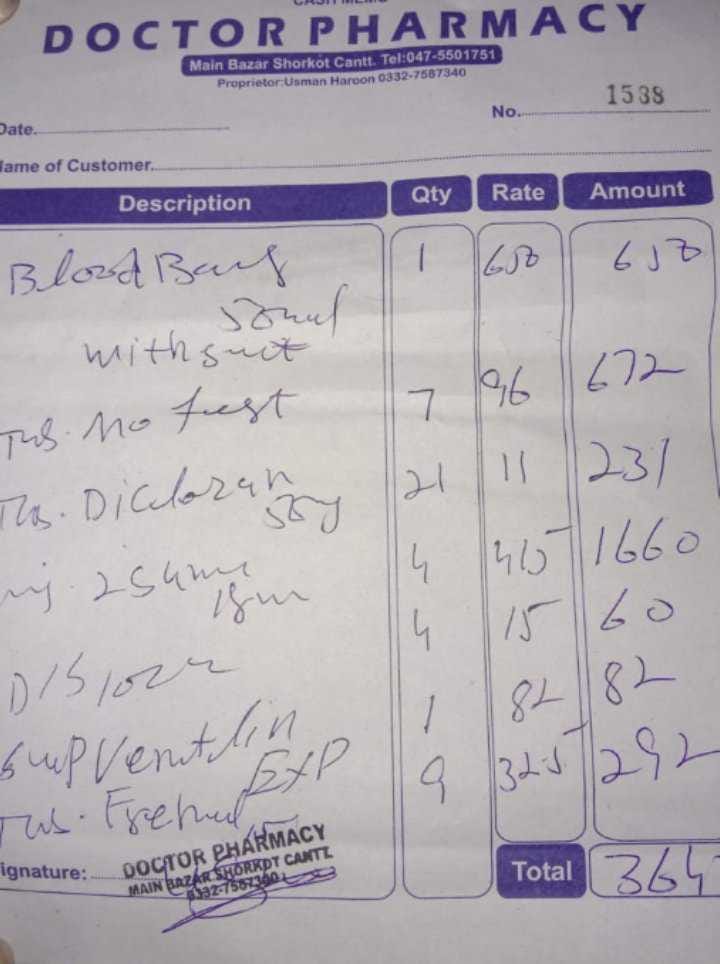 DOCTOR PHARMACY
Main Bazar Shorkot Cantt. Tel:047-5501751
Proprietor:Usman Haroon 0332-7587340
No. 1538
Date.
Name of Customer.
Description Qty Rate Amount
Blood Bag 1 650 650
500ml
with
7 96 672
Tab. Dicloran 21 11 231
50mg
Inj. 4 415 1660
1gm
D/S 10cc 4 15 60
Syrup Ventolin 1 82 82
EXP
Tab. 9 32.5 292
Signature:
DOCTOR PHARMACY
MAIN BAZAR SHORKOT CANTT.
Total 364